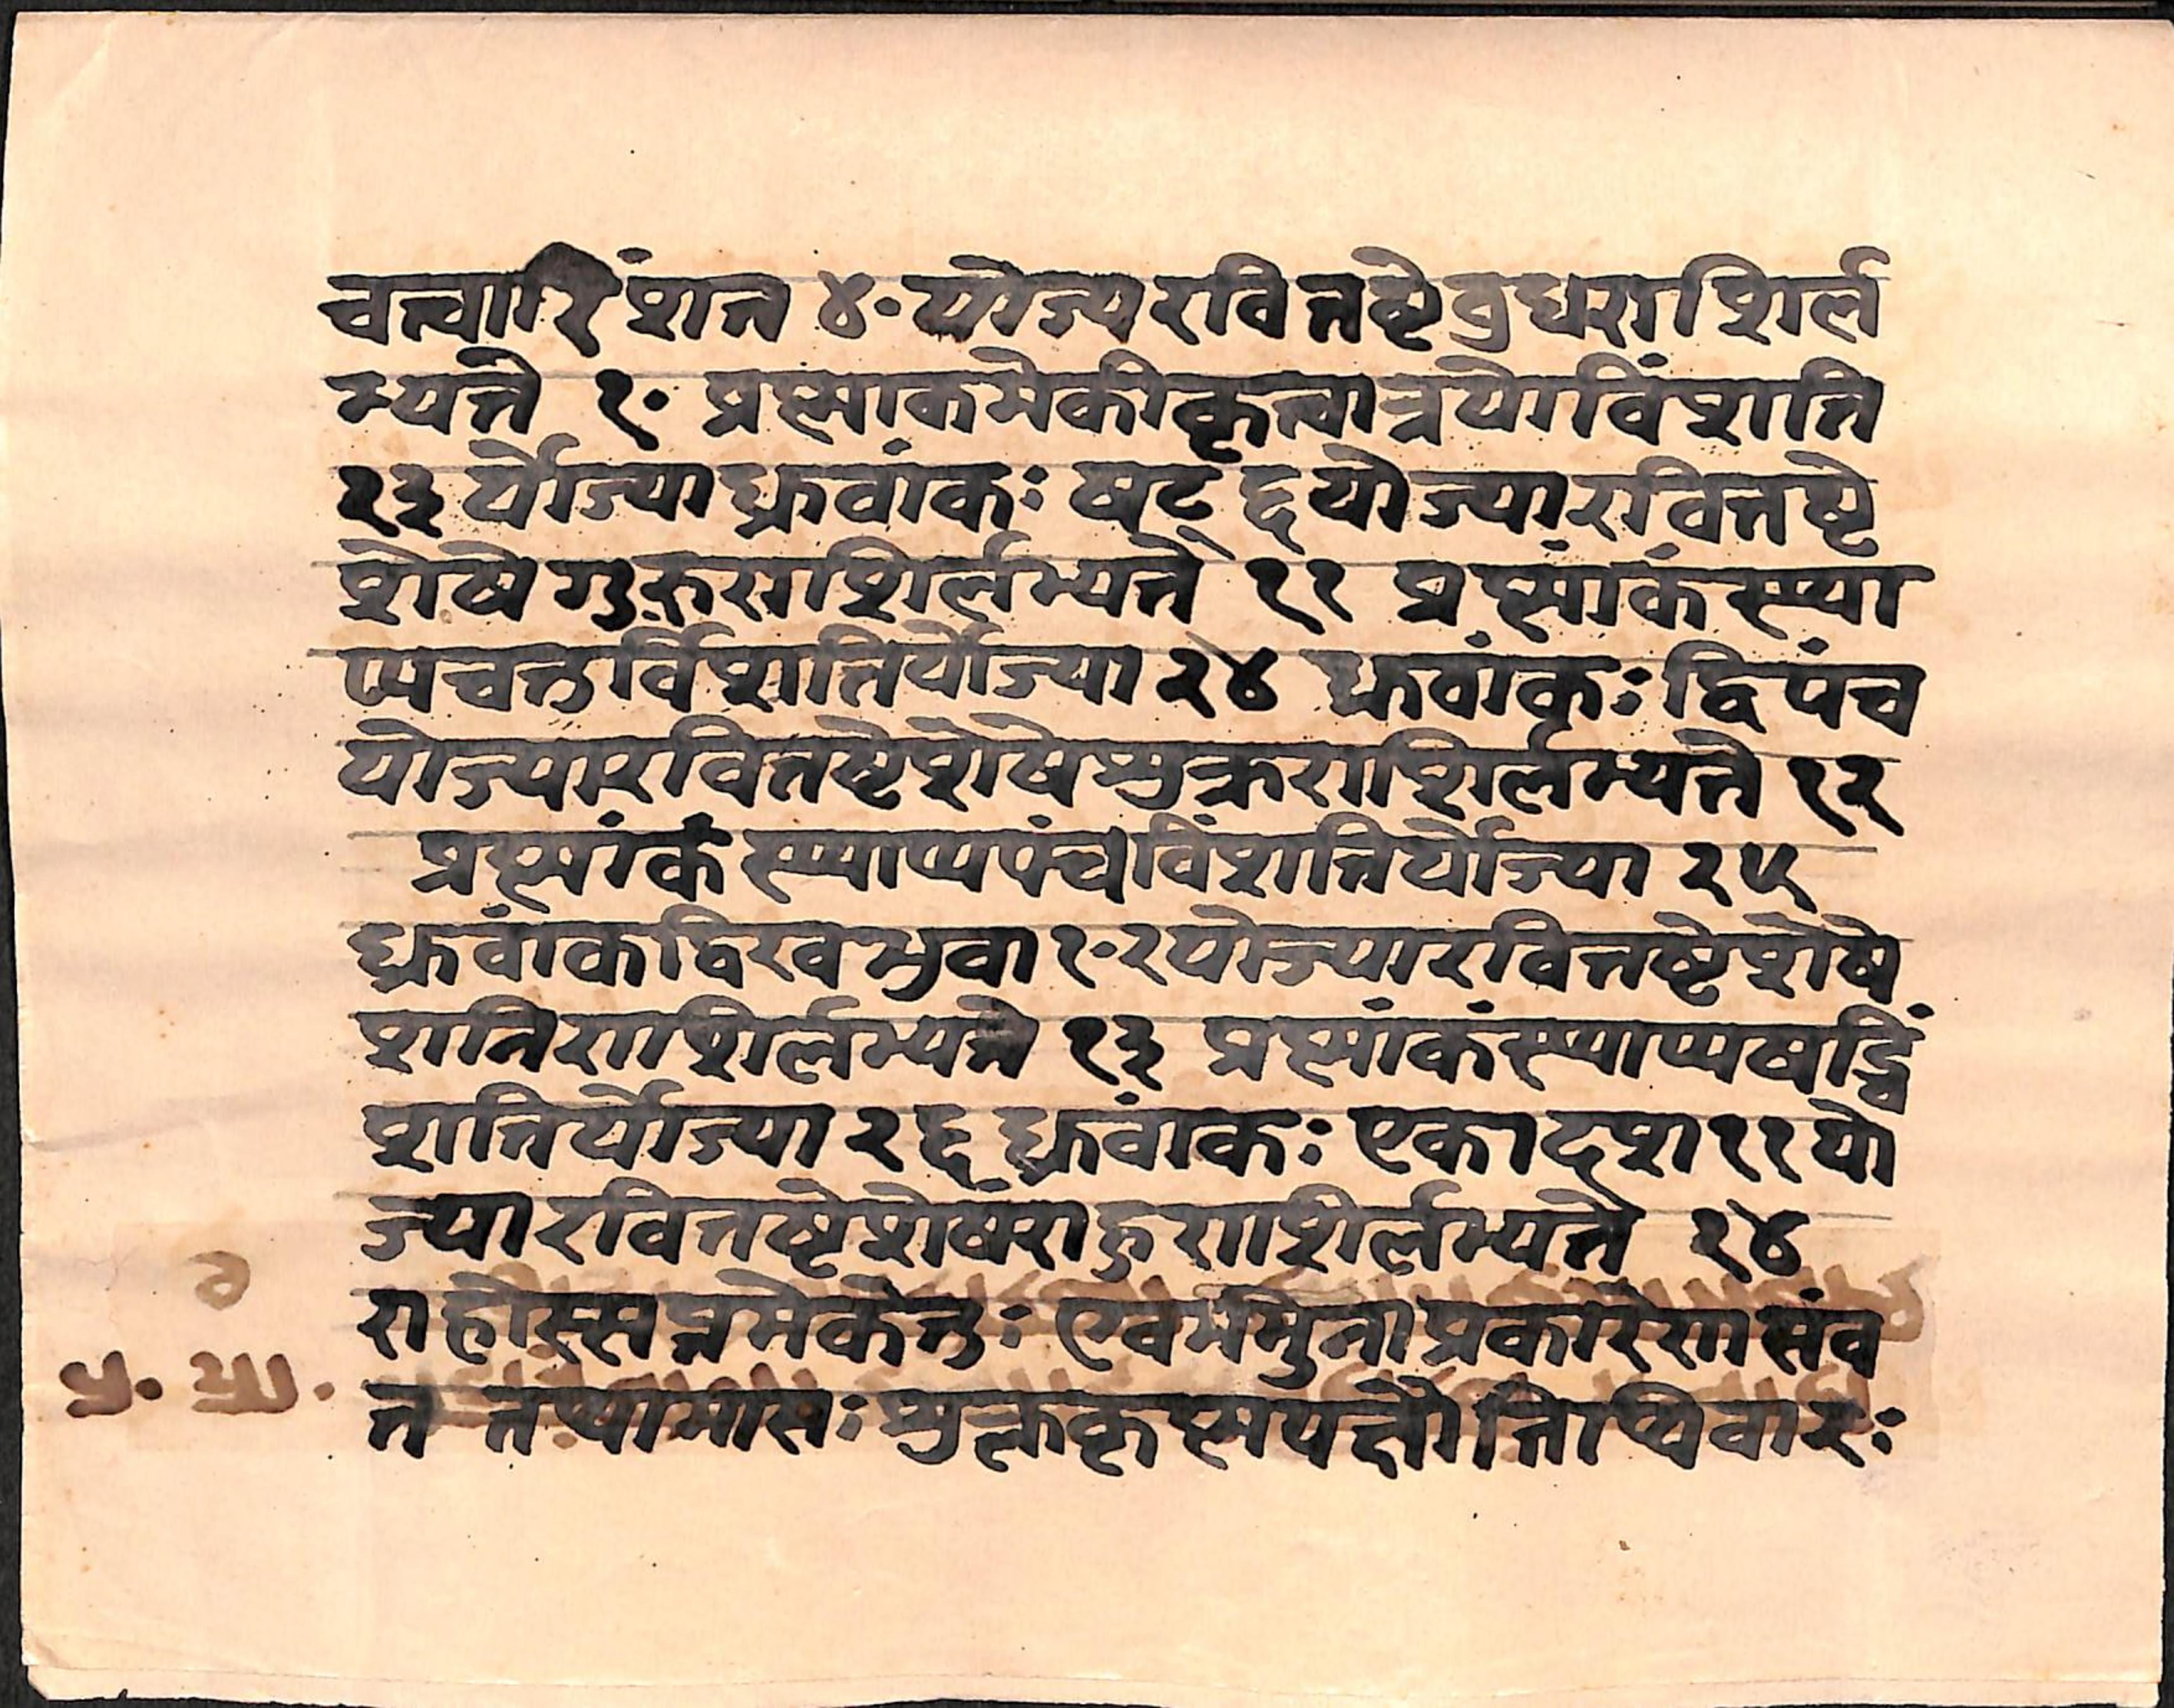 चत्वारिंशत ४॰ योज्य रवितष्टे बुधराशिर्ल
भ्यते १॰ प्रष्माकमेकीकृत्वा त्रयोविंशति
२३ र्योज्या ध्रुवांकः षट् ६ योज्या रवितष्टे
शेषे गुरुराशिर्लभ्यते ११ प्रष्मांकं स्था
प्य चतुर्विंशतिर्योज्या २४ ध्रुवांकः द्विपंच
योज्या रवितष्टे शेषे शुक्रराशिर्लभ्यते १२
प्रष्मांकं स्थाप्य पंचविंशतिर्योज्या २५
ध्रुवांक द्विखभुवा १॰२ योज्या रवितष्टे शेषे
शनिराशिर्लभ्यते १३ प्रष्मांकं स्थाप्य षड्विं
शतिर्योज्या २६ ध्रुवांकः एकादश ११ यो
ज्या रवितष्टे शेषं राहुराशिर्लभ्यते १४
राहोस्सप्तमे केतुः एवममुना प्रकारेण संव
त तथा मासः शुक्लकृष्णपक्षौ तिथिवारः
प्र॰